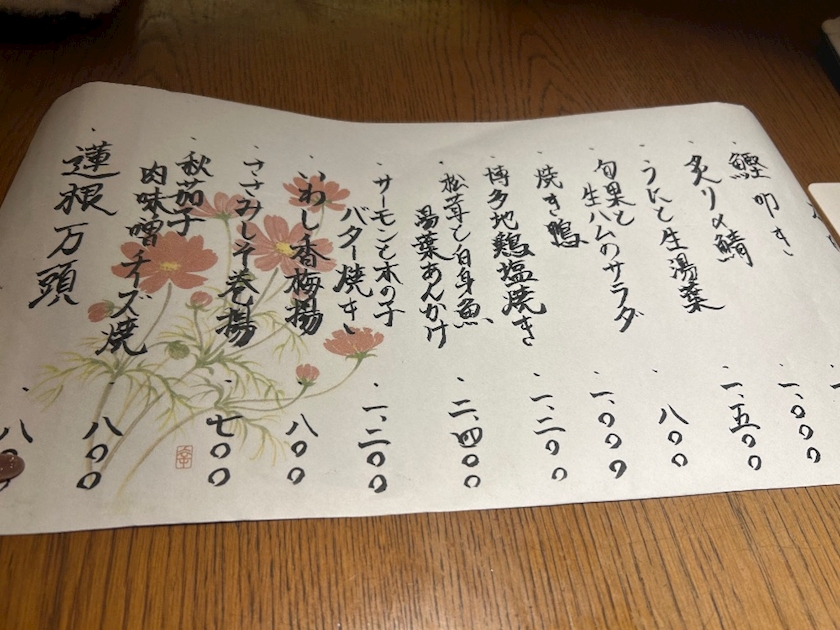 鰹叩き
炙り〆鯖
一、〇〇〇
うにと生湯葉
一、五〇〇
旬果と
生ハムのサラダ
八〇〇
焼き鴨
一、〇〇〇
博多地鶏塩焼き
一、二〇〇
松茸と白身魚、
湯葉あんかけ
二、四〇〇
サーモンと木の子
バター焼き
一、二〇〇
いわし香梅揚
八〇〇
ささみしそ巻揚
七〇〇
秋茄子
肉味噌チーズ焼
八〇〇
蓮根万頭